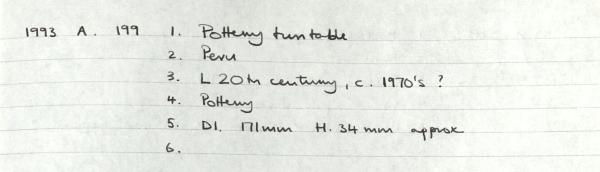 1993 A. 199 1. Pottery turntable
2. Peru
3. L 20th century, c. 1970's ?
4. Pottery
5. DI. 171mm H. 34mm approx
6.